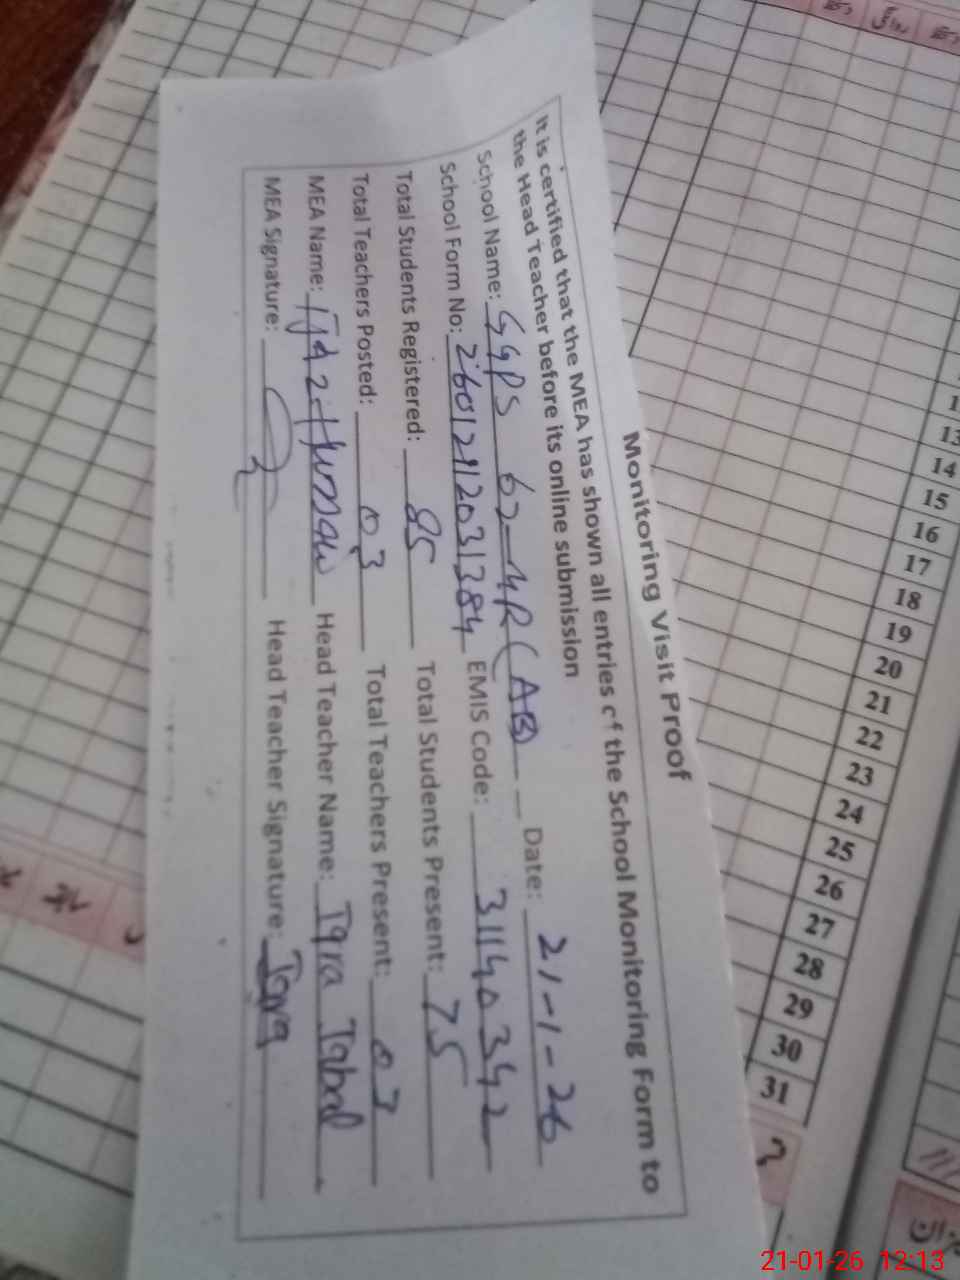 Monitoring Visit Proof
It is certified that the MEA has shown all entries of the School Monitoring Form to
the Head Teacher before its online submission
School Name: GGPS 62-4R (AB) Date: 21-1-26
School Form No: 26012112031384 EMIS Code: 31140342
Total Students Registered: 85 Total Students Present: 75
Total Teachers Posted: 03 Total Teachers Present: 03
MEA Name: Ijaz Hussain Head Teacher Name: Iqra Iqbal
MEA Signature: Head Teacher Signature: Iqra
13
14
15
16
17
18
19
20
21
22
23
24
25
26
27
28
29
30
31
21-01-26 12:13